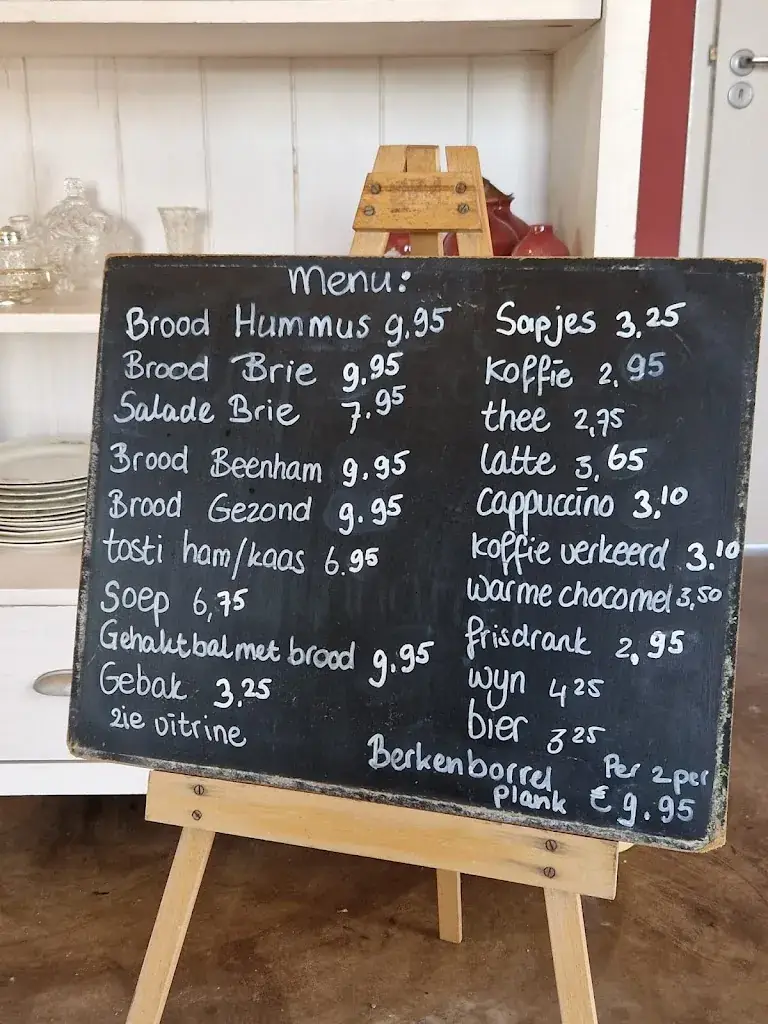 Menu:
Brood Hummus 9.95
Brood Brie 9.95
Salade Brie 7.95
Brood Beenham 9.95
Brood Gezond 9.95
tosti ham/kaas 6.95
Soep 6,75
Gehaktbal met brood 9.95
Gebak 3.25
zie vitrine
Sapjes 3.25
Koffie 2.95
thee 2,75
latte 3,65
cappuccino 3.10
koffie verkeerd 3.10
warme chocomel 3,50
frisdrank 2,95
wyn 4 25
bier 3 25
Berkenborrel Per 2 per
plank € 9.95